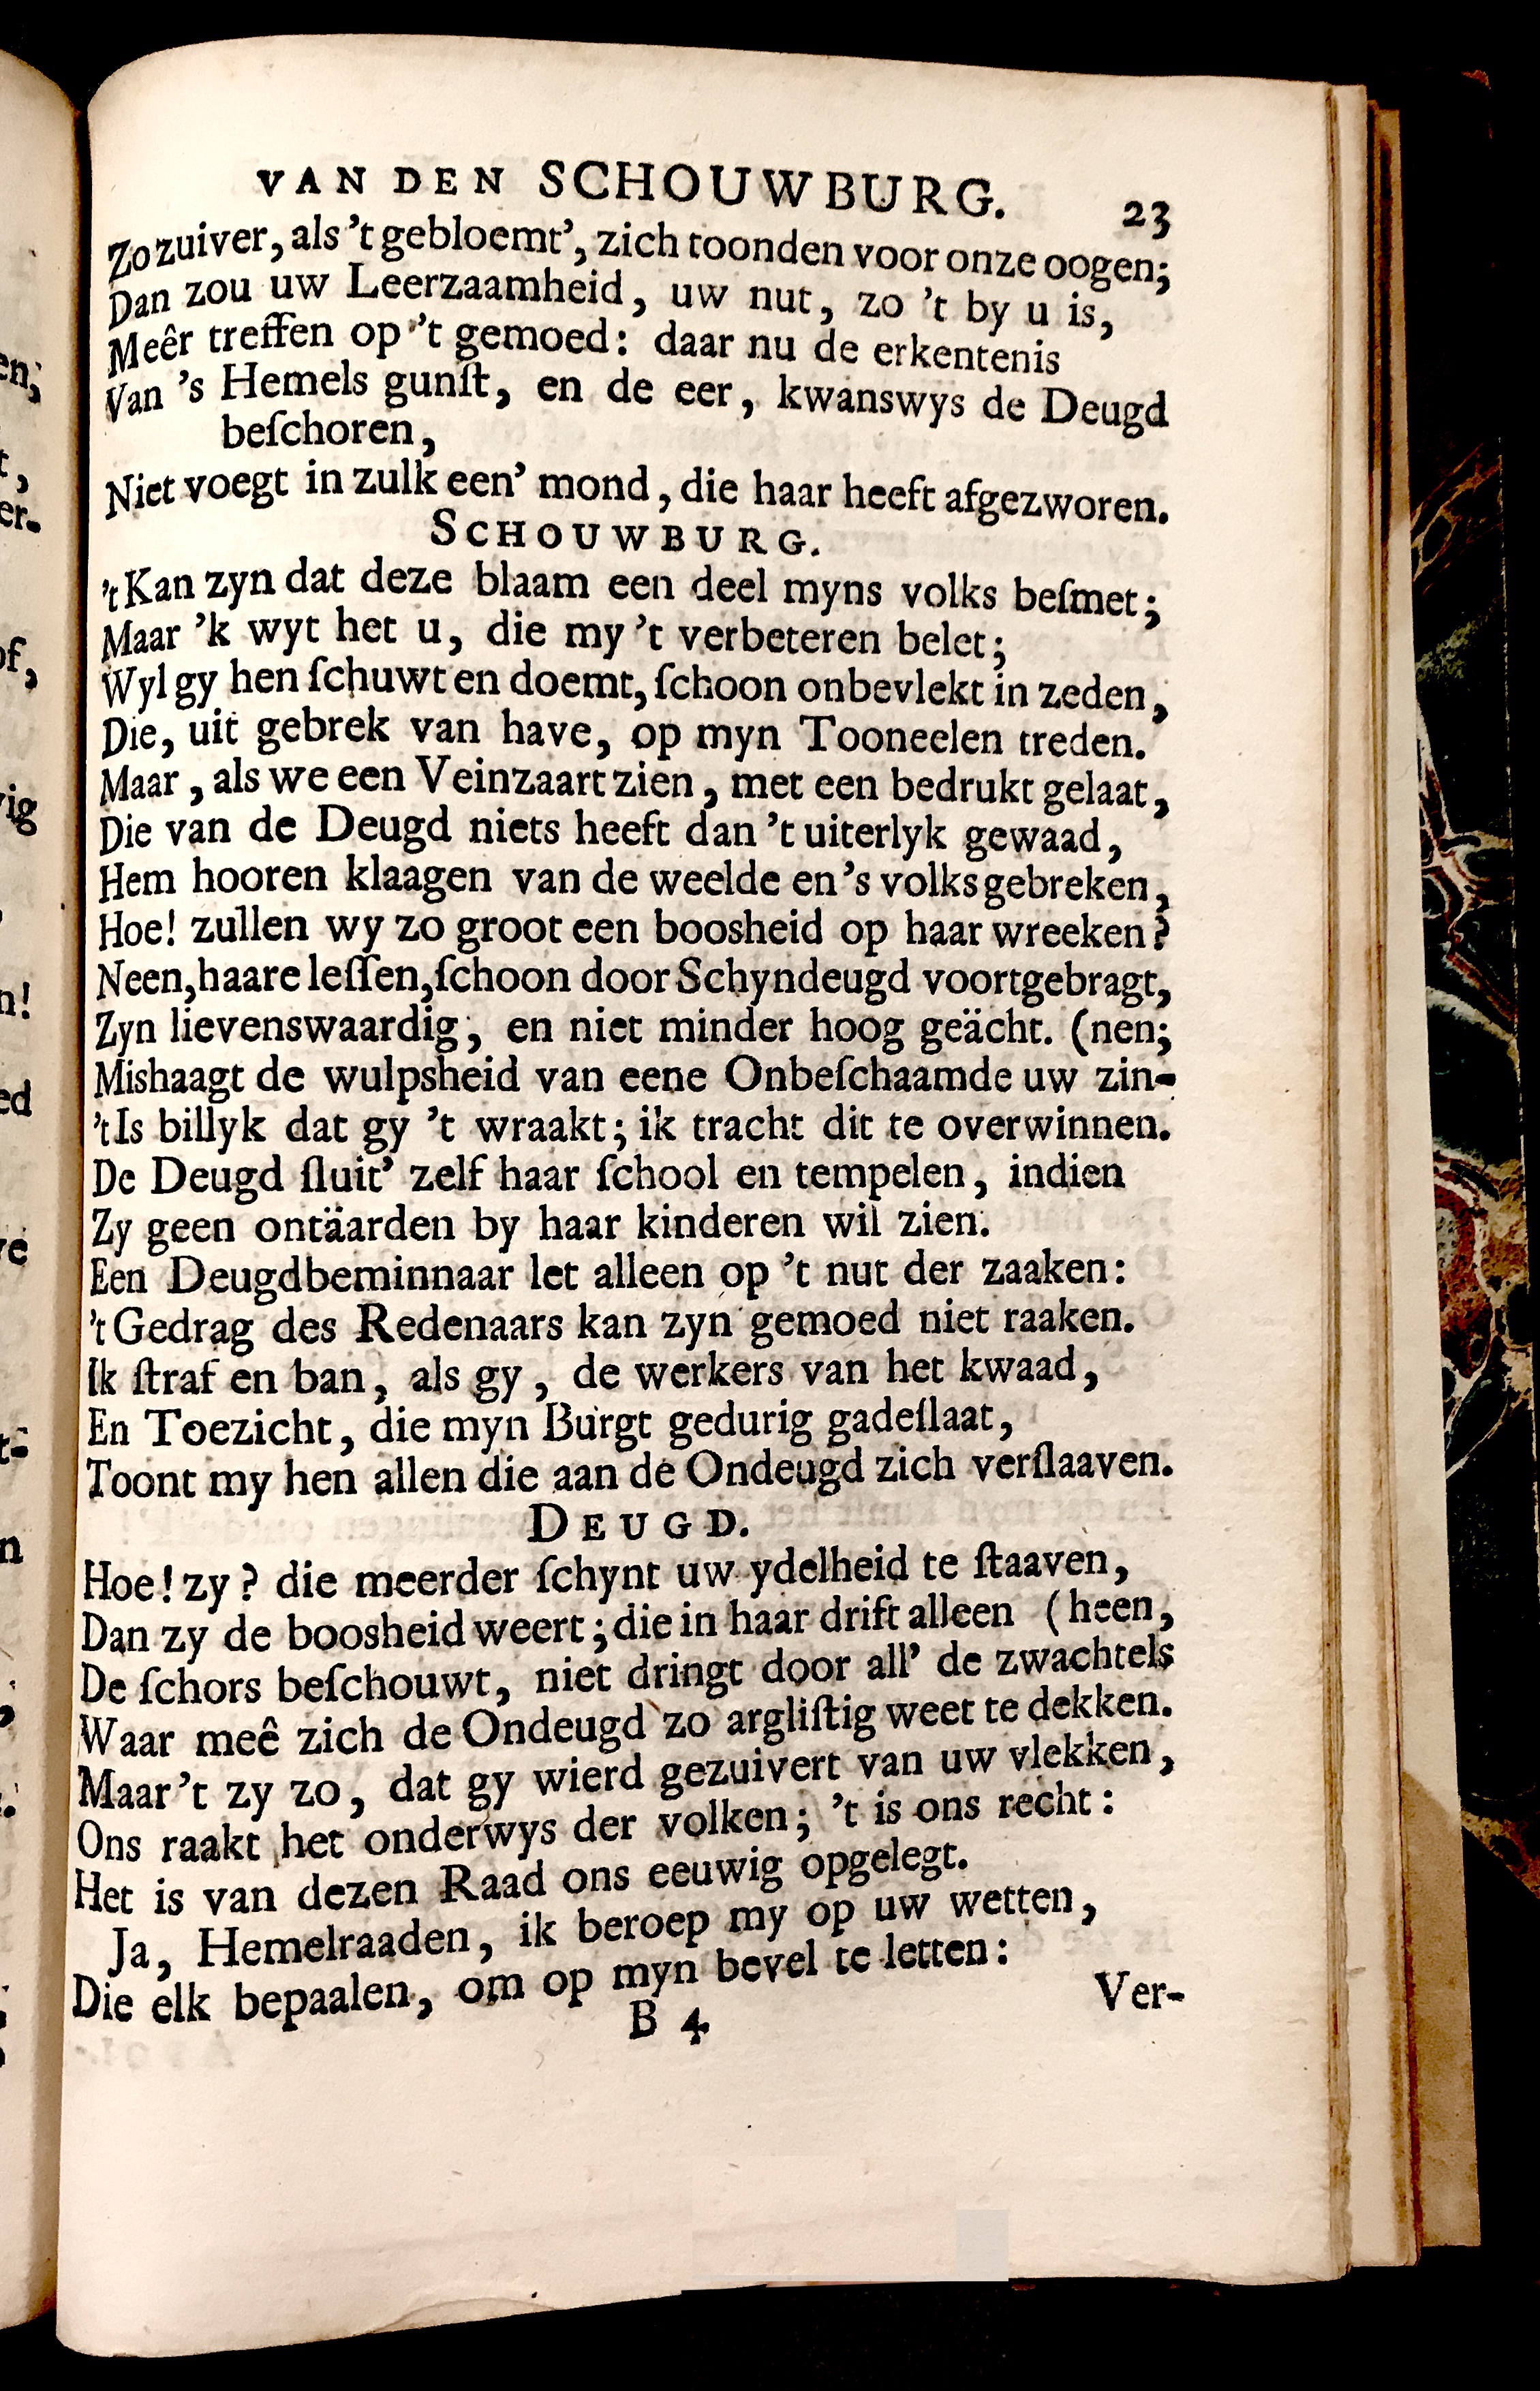 VAN DEN SCHOUWBURG. 23
Zo zuiver, als 't gebloemt', zich toonden voor onze oogen;
Dan zou uw Leerzaamheid, uw nut, zo 't by u is,
Meêr treffen op 't gemoed: daar nu de erkentenis
Van 's Hemels gunſt, en de eer, kwanswys de Deugd
beſchoren,
Niet voegt in zulk een' mond, die haar heeft afgezworen.
SCHOUWBURG.
't Kan zyn dat deze blaam een deel myns volks beſmet;
Maar 'k wyt het u, die my 't verbeteren belet;
Wyl gy hen ſchuwt en doemt, ſchoon onbevlekt in zeden,
Die, uit gebrek van have, op myn Tooneelen treden.
Maar, als we een Veinzaart zien, met een bedrukt gelaat,
Die van de Deugd niets heeft dan 't uiterlyk gewaad,
Hem hooren klaagen van de weelde en 's volks gebreken,
Hoe! zullen wy zo groot een boosheid op haar wreeken?
Neen, haare leſſen, ſchoon door Schyndeugd voortgebragt,
Zyn lievenswaardig, en niet minder hoog geächt. (nen;
Mishaagt de wulpsheid van eene Onbeſchaamde uw zin-
't Is billyk dat gy 't wraakt; ik tracht dit te overwinnen.
De Deugd ſluit' zelf haar ſchool en tempelen, indien
Zy geen ontäarden by haar kinderen wil zien.
Een Deugdbeminnaar let alleen op 't nut der zaaken:
't Gedrag des Redenaars kan zyn gemoed niet raaken.
Ik ſtraf en ban, als gy, de werkers van het kwaad,
En Toezicht, die myn Burgt gedurig gadeſlaat,
Toont my hen allen die aan de Ondeugd zich verſlaaven.
DEUGD.
Hoe! zy? die meerder ſchynt uw ydelheid te ſtaaven,
Dan zy de boosheid weert; die in haar drift alleen (heen,
De ſchors beſchouwt, niet dringt door all' de zwachtels
Waar meê zich de Ondeugd zo argliſtig weet te dekken.
Maar 't zy zo, dat gy wierd gezuivert van uw vlekken,
Ons raakt het onderwys der volken; 't is ons recht:
Het is van dezen Raad ons eeuwig opgelegt.
Ja, Hemelraaden, ik beroep my op uw wetten,
Die elk bepaalen, om op myn bevel te letten:
B 4 Ver-